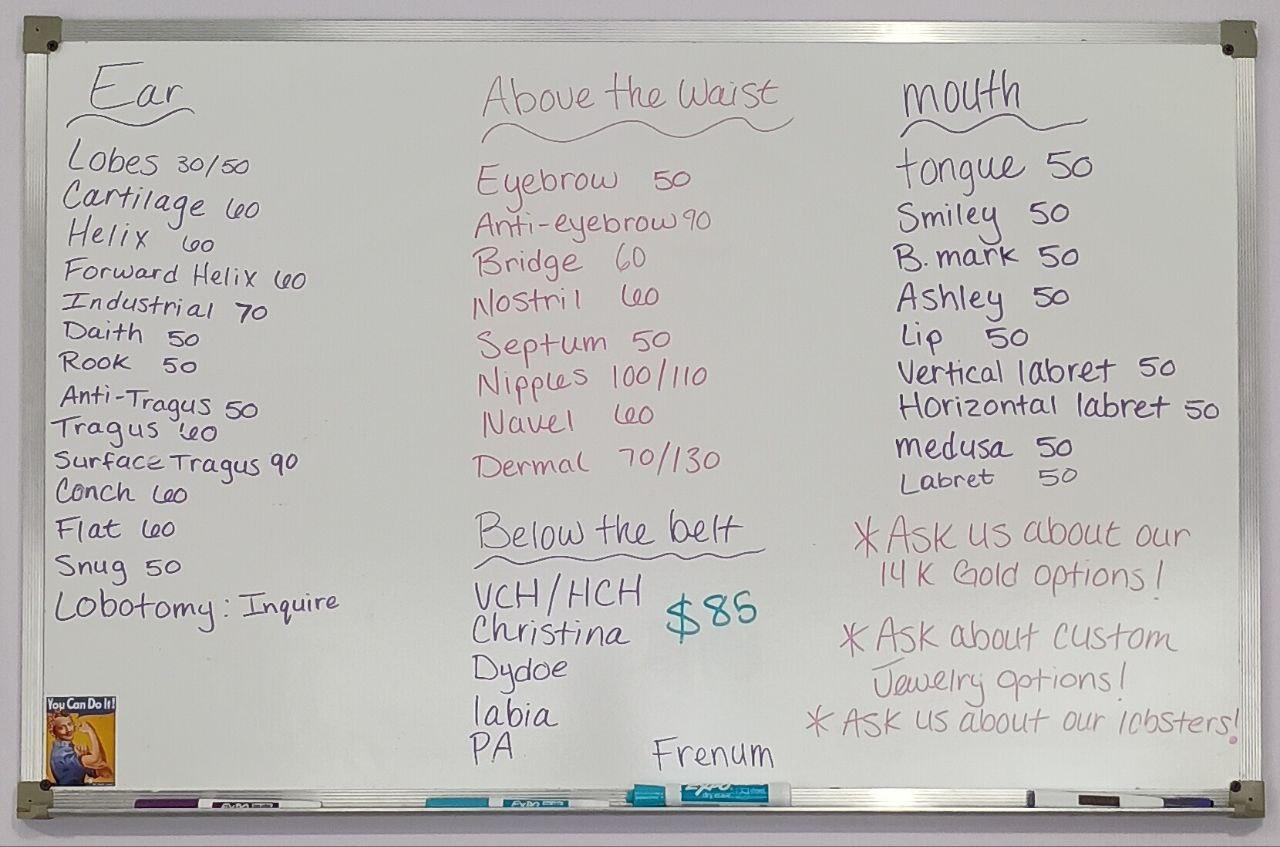 Ear
Lobes 30/50
Cartilage 60
Helix 60
Forward Helix 60
Industrial 70
Daith 50
Rook 50
Anti-Tragus 50
Tragus 60
Surface Tragus 90
Conch 60
Flat 60
Snug 50
Lobotomy: Inquire
You Can Do It!
Above the Waist
Eyebrow 50
Anti-eyebrow 90
Bridge 60
Nostril 60
Septum 50
Nipples 100/110
Navel 60
Dermal 70/130
Below the belt
VCH/HCH
Christina
$85
Dydoe
labia
PA
Frenum
mouth
tongue 50
Smiley 50
B. mark 50
Ashley 50
Lip 50
Vertical labret 50
Horizontal labret 50
medusa 50
Labret 50
*Ask us about our
14K Gold options!
*Ask about custom
Jewelry options!
*Ask us about our lobsters!
EXPO
EXPO
EXPO